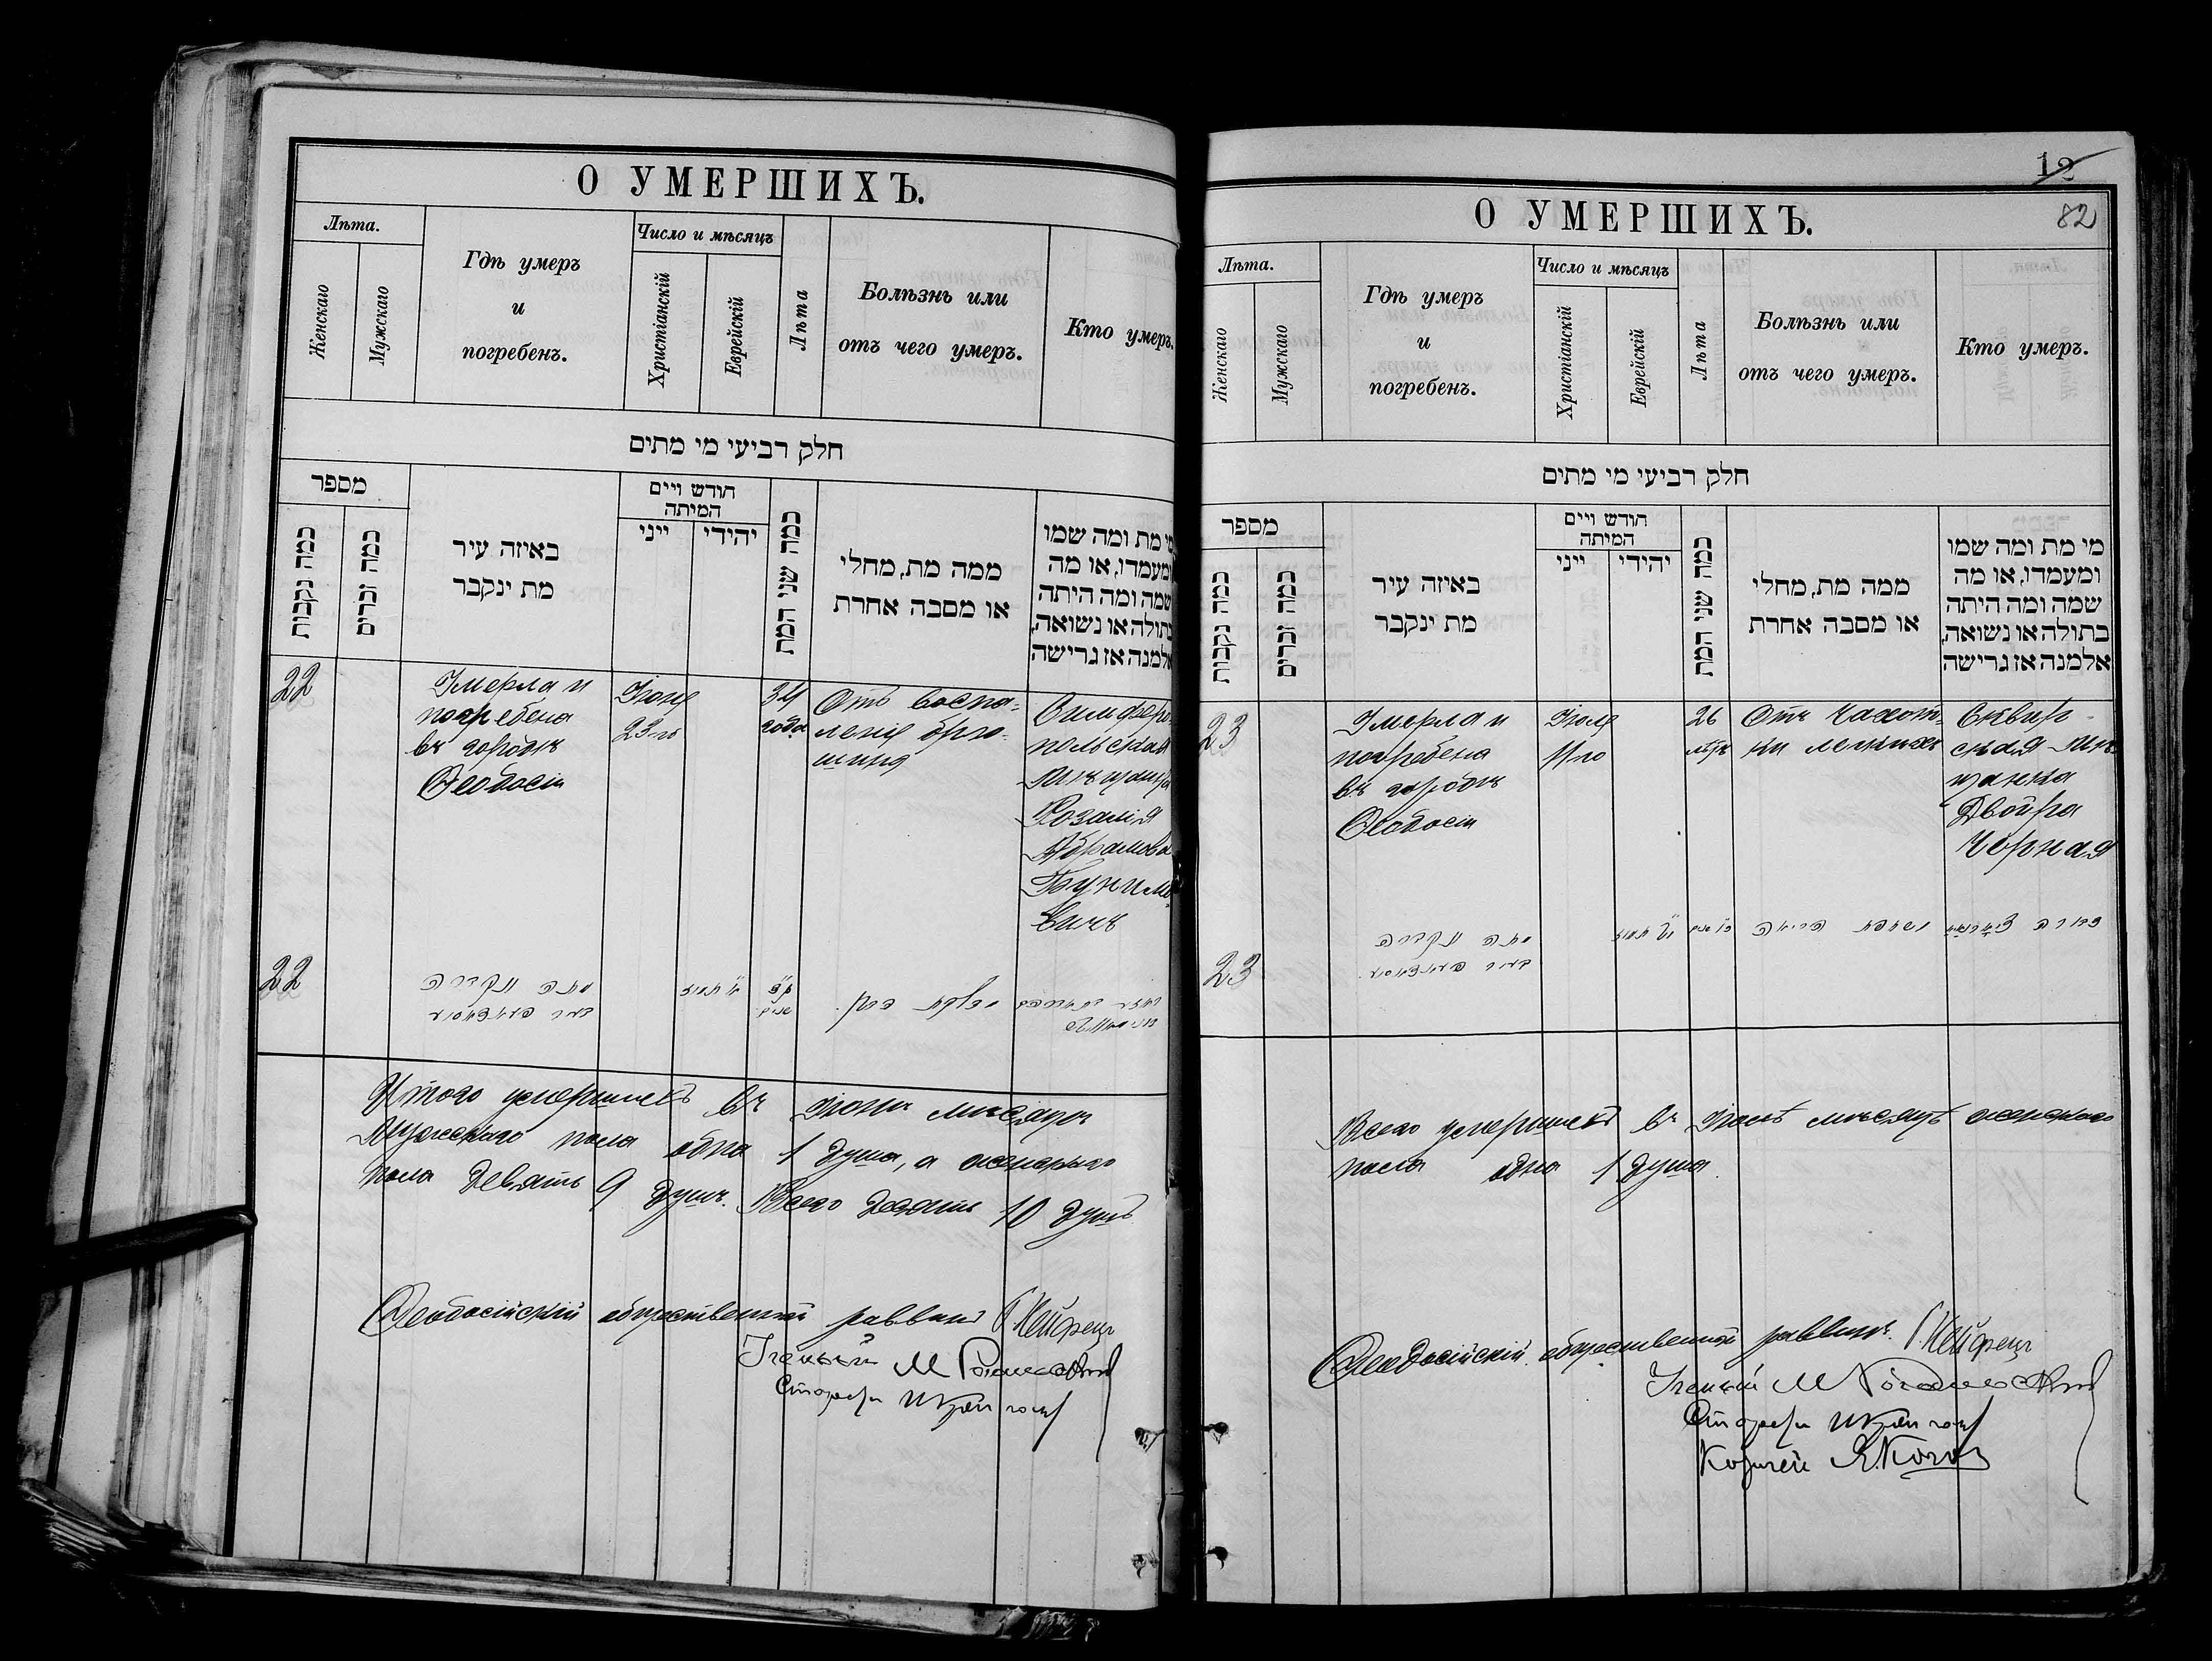 О УМЕРШИХЪ.
Лѣта.
Женскаго
Мужскаго
Гдѣ умеръ
и
погребенъ.
Число и мѣсяцъ
Христіанскій
Еврейскій
Лѣта
Болѣзнь или
отъ чего умеръ.
Кто умеръ.
חלק רביעי מי מתים
מספר
כמה נקבות
כמה זכרים
באיזה עיר
מת ינקבר
חודש ויים
המיתה
ייני
יהידי
כמה שני המת
ממה מת, מחלי
או מסבה אחרת
מי מת ומה שמו
ומעמדו, או מה
שמה ומה היתה
בתולה או נשואה,
אלמנה אז גרישה
22
Умерла и
погребена
въ городѣ
Ѳеодосіи
Іюня
23го
34
года
Отъ воспа-
ленія брю-
шина
Симферо-
польская
мѣщанка
Розалія
Абрамова
Бунимо-
вичъ
22
מתה ונקברה
בעיר
תמוז
שנים
דלקת
Итого умершихъ въ Іюнѣ мѣсяцѣ
Мужскаго пола одна 1 душа, а женскаго
пола девять 9 душъ. Всего десять 10 душъ
Ѳеодосійскій общественный раввинъ
Ученый М
Староста
12
82
О УМЕРШИХЪ.
Лѣта.
Женскаго
Мужскаго
Гдѣ умеръ
и
погребенъ.
Число и мѣсяцъ
Христіанскій
Еврейскій
Лѣта
Болѣзнь или
отъ чего умеръ.
Кто умеръ.
חלק רביעי מי מתים
מספר
כמה נקבות
כמה זכרים
באיזה עיר
מת ינקבר
חודש ויים
המיתה
ייני
יהידי
כמה שני המת
ממה מת, מחלי
או מסבה אחרת
מי מת ומה שמו
ומעמדו, או מה
שמה ומה היתה
בתולה או נשואה,
אלמנה אז גרישה
23
Умерла и
погребена
въ городѣ
Ѳеодосіи
Іюля
11го
26
лѣтъ
Отъ чахот-
ки легкихъ
Сквир-
ская мѣ-
щанка
Двойра
Чорная
23
מתה ונקברה
בעיר
תמוז
שחפת הריאה
Всего умершихъ въ Іюлѣ мѣсяцѣ женскаго
пола одна 1 душа.
Ѳеодосійскій общественный раввинъ.
Ученый М
Староста
Казначей